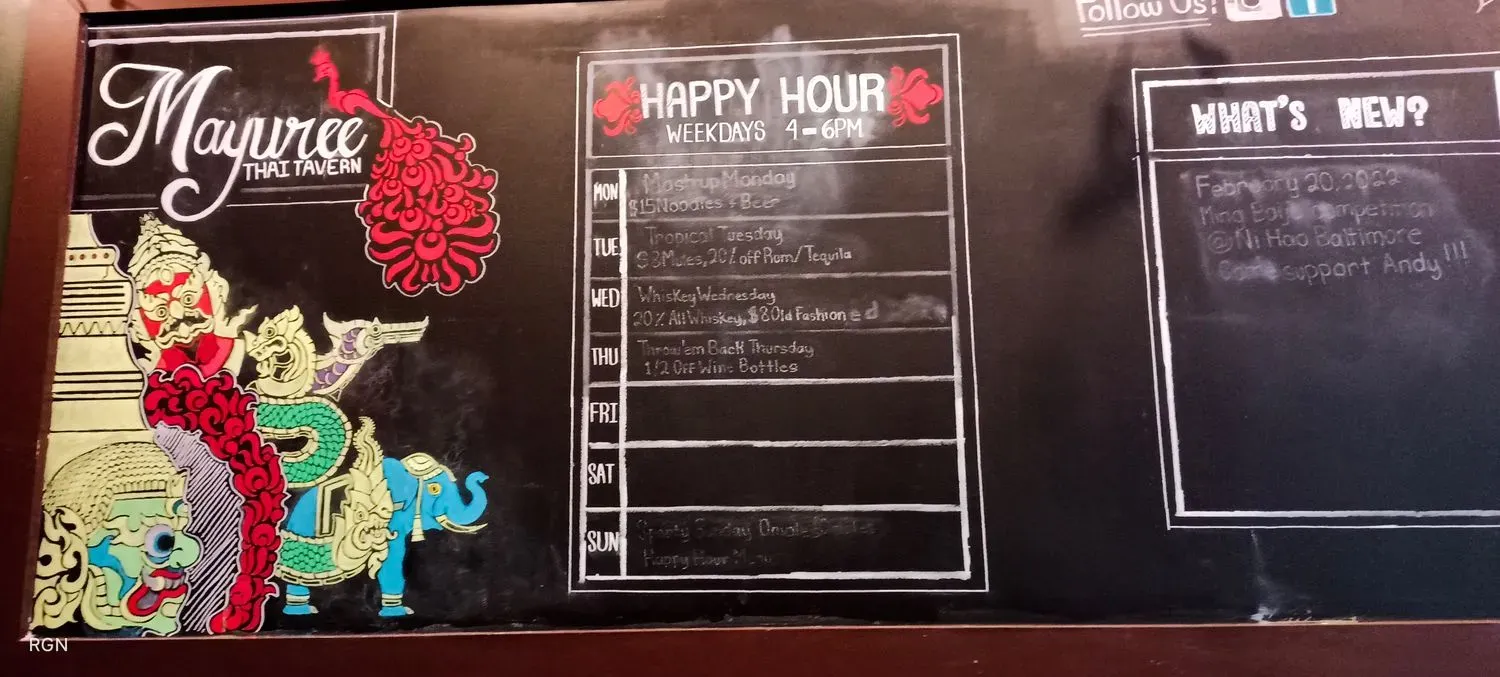 Mayuree
THAI TAVERN
HAPPY HOUR
WEEKDAYS 4-6PM
MON
Mashup Monday
$15 Noodles + Beer
TUE
Tropical Tuesday
$8 Mules, 20% off Rum/Tequila
WED
Whiskey Wednesday
20% All Whiskey, $8 Old Fashioned
THU
Throw'em Back Thursday
1/2 Off Wine Bottles
FRI
SAT
SUN
Sunday
Happy Hour Menu
Follow Us!
WHAT'S NEW?
February 20, 2022
Ming competition
@ Ni Hao Baltimore
support Andy!!!
RGN